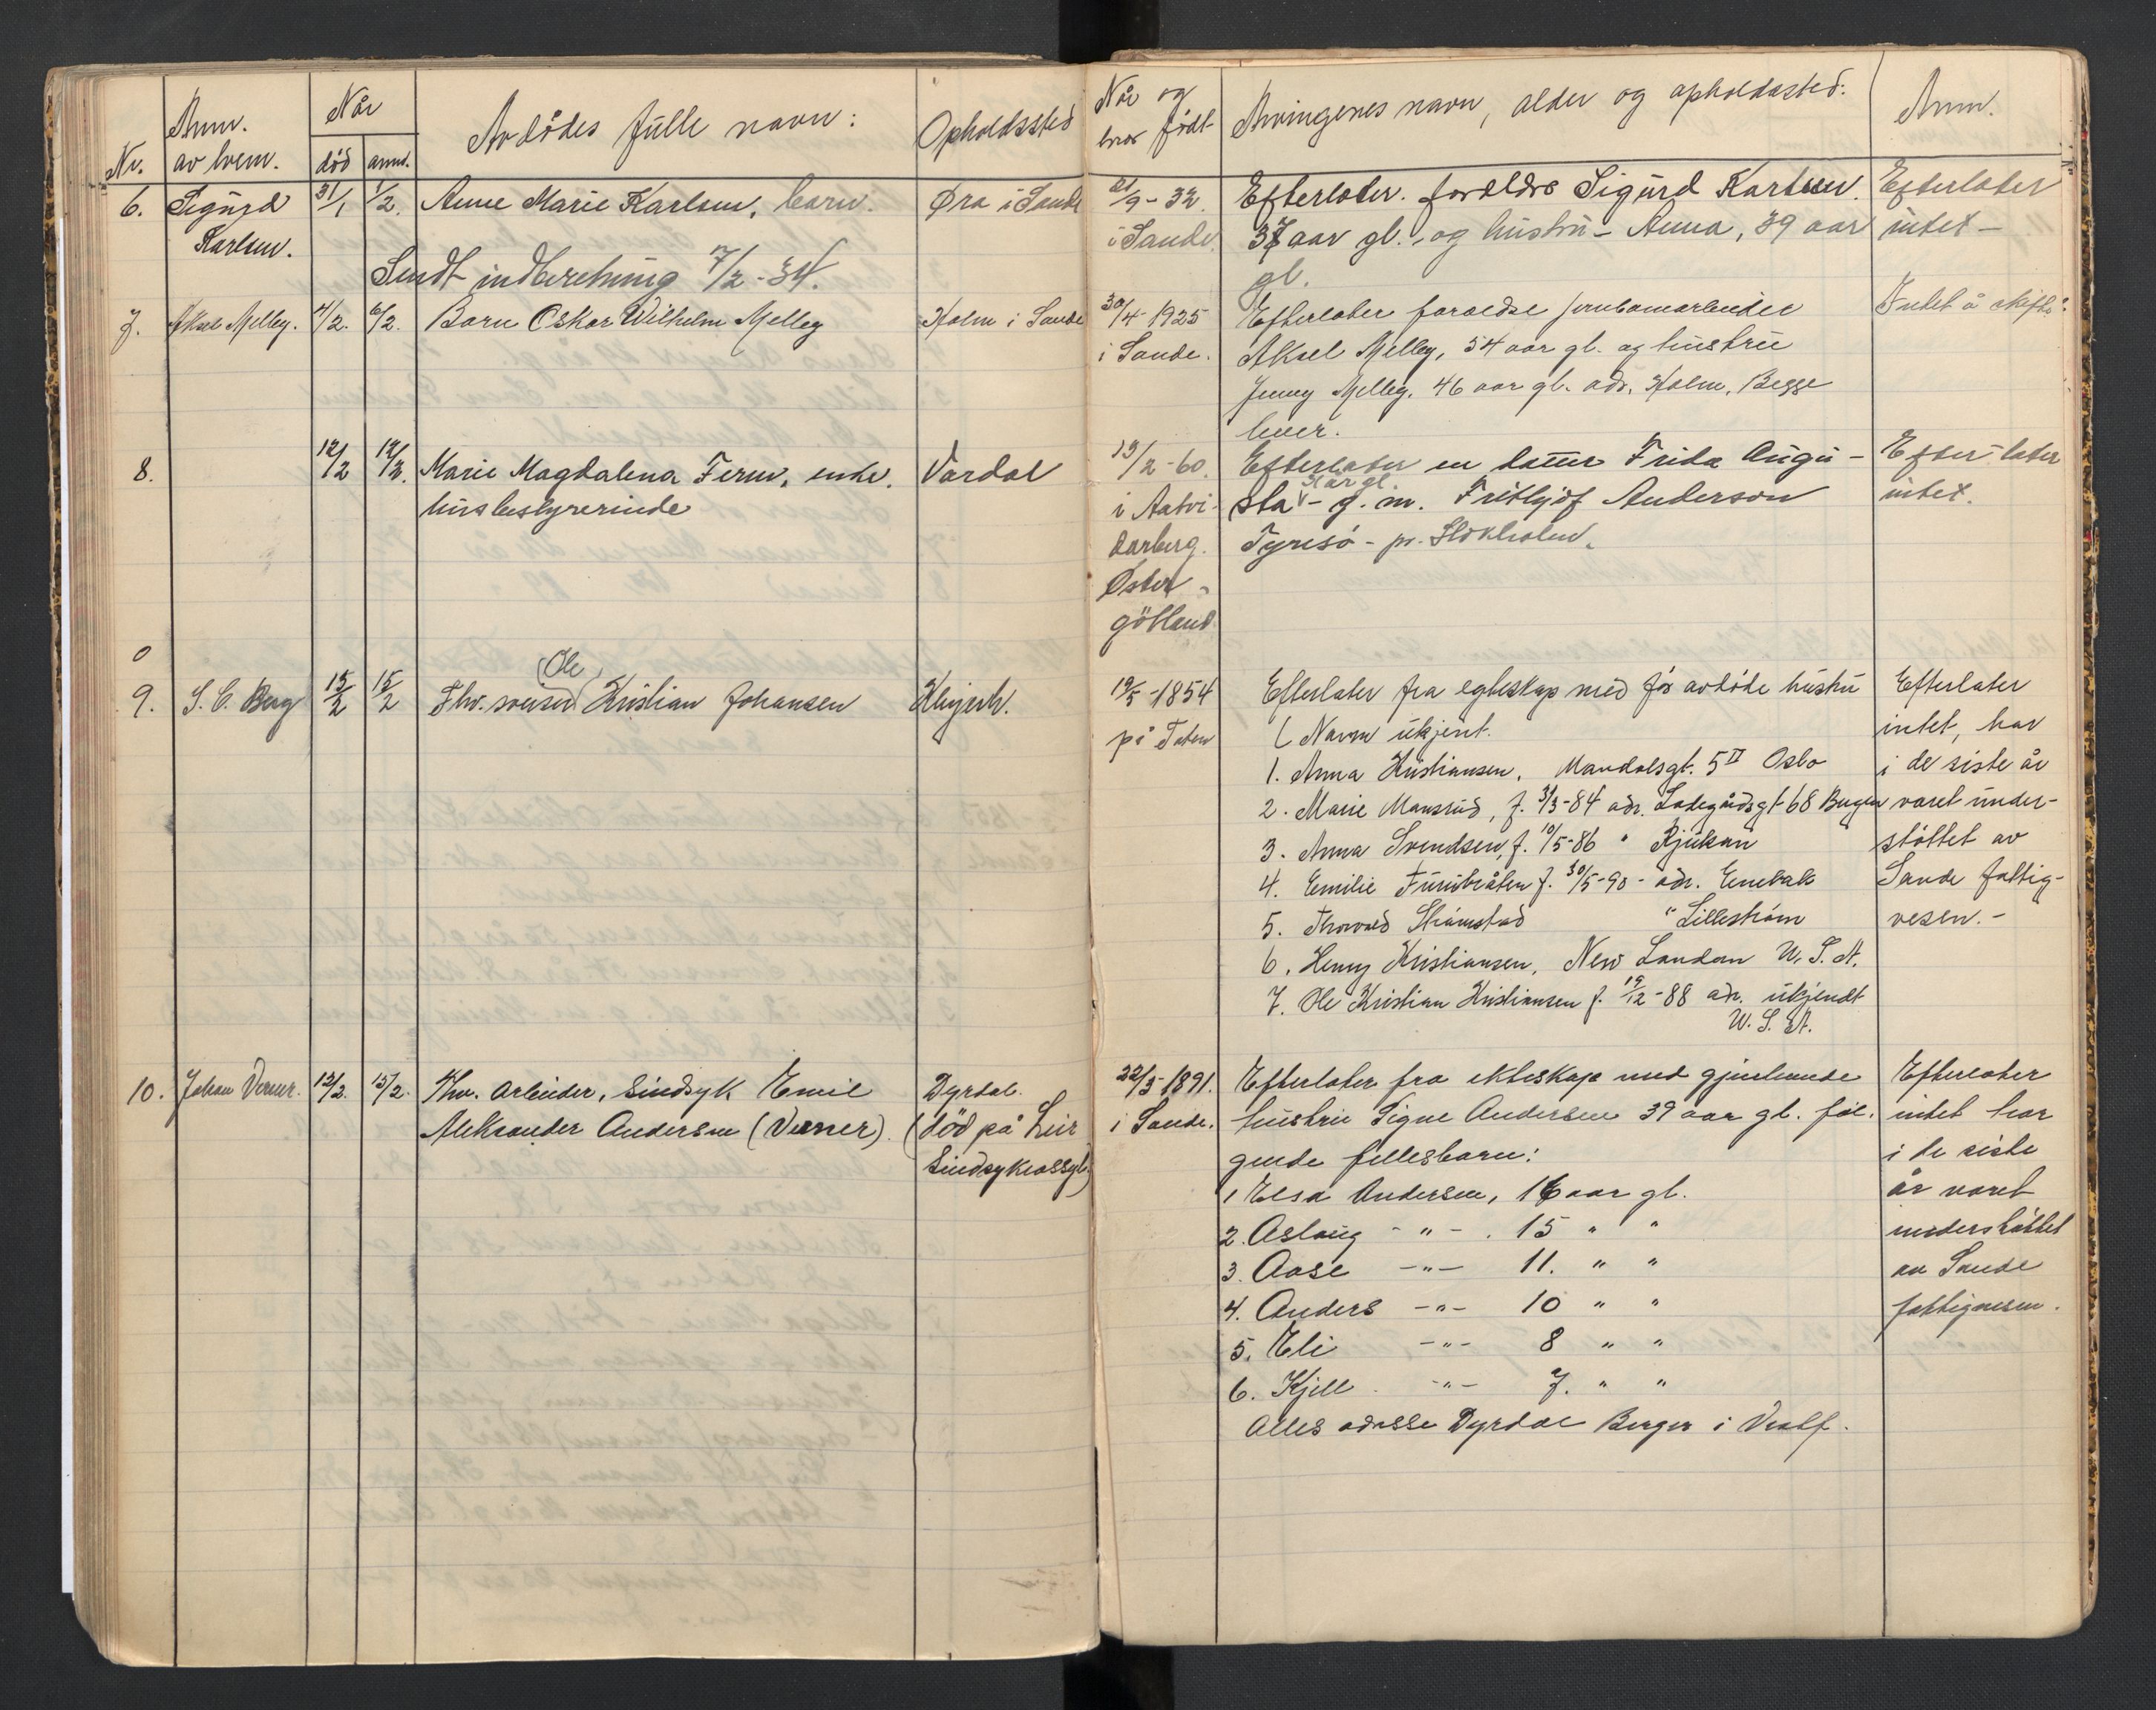 Nr.
Anm.
av hvem.
Når
død
anm.
Avdødes fulle navn:
Opholdssted
Når og
hvor født
Arvingenes navn, alder og opholdssted:
Anm.
6.
Sigurd
Karlsen.
31/1
1/2.
Anne Marie Karlsen, barn.
Øra i Sande
21/9-32.
i Sande.
Efterlater. forældre Sigurd Karlsen.
37 aar gl. og hustru - Anna, 39 aar
gl.
Efterlater
intet -
Sendt indberetning 7/2-34.
7.
Aksel Melleg.
4/2.
6/2.
Barn Oskar Wilhelm Melleg
Holm i Sande
30/4-1925
i Sande.
Efterlater foraedre jernbanearbeider
Aksel Melleg, 54 aar gl. og hustru
Jenny Melleg, 46 aar gl. adr. Holm. Begge
lever.
Intet å skifte.
8.
12/2
12/2.
Marie Magdalena Ferm, enke.
husbestyrerinde
Vardal
13/2-60.
i Aatvi-
darberg.
Øster-
götland
Efterlater en datter Frida Augu-
sta - g. m. Frithjof Anderson
Tyresö - pr. Stokholm.
Efterlater
intet.
0
9.
S. C. Berg
15/2
15/2
Fhv. sveiser (Ole) Kristian Johansen
19/5-1854
på Toten
Efterlater fra egteskap med før avdøde hustru
(Navn ukjent.
1. Anna Kristiansen, Mandalsgt. 5 II Oslo
2. Marie Mansrud, f. 3/3-84 adr. Ladegårdsgt 68 Bergen
3. Anna Svendsen, f. 10/5-86 " Rjukan
4. Emilie Furubråten f. 30/5-90 - adr. Enebak
5. Thorvald Strømstad " Lillestrøm
6. Henry Kristiansen, New London U. S. A.
7. Ole Kristian Kristiansen f. 19/12-88 adr. ukjendt
U. S. A.
Efterlater
intet, har
i de siste år
været under-
støttet av
Sande fattig-
vesen. -
10.
Johan Verner.
12/2.
15/2.
Fhv. Arbeider, Sindsyk Emil
Aleksander Andersen (Verner).
Dyrdal.
(død på Lier
Sindsykeassyl.)
22/3-1891.
i Sande.
Efterlater fra ekteskap med gjenlevende
hustru Signe Andersen 39 aar gl. føl-
gende fellesbarn:
1 Elsa Andersen, 16 aar gl.
2. Aslaug - " - . 15 " "
3. Aase - " - 11. " "
4. Anders - " - 10 " "
5. Eli - " - 8 " "
6. Kjell. - " - 7. " "
Alles adresse Dyrdal Berger i Vestf.
Efterlater
intet har
i de siste
år været
understøttet
av Sande
fattigvesen.